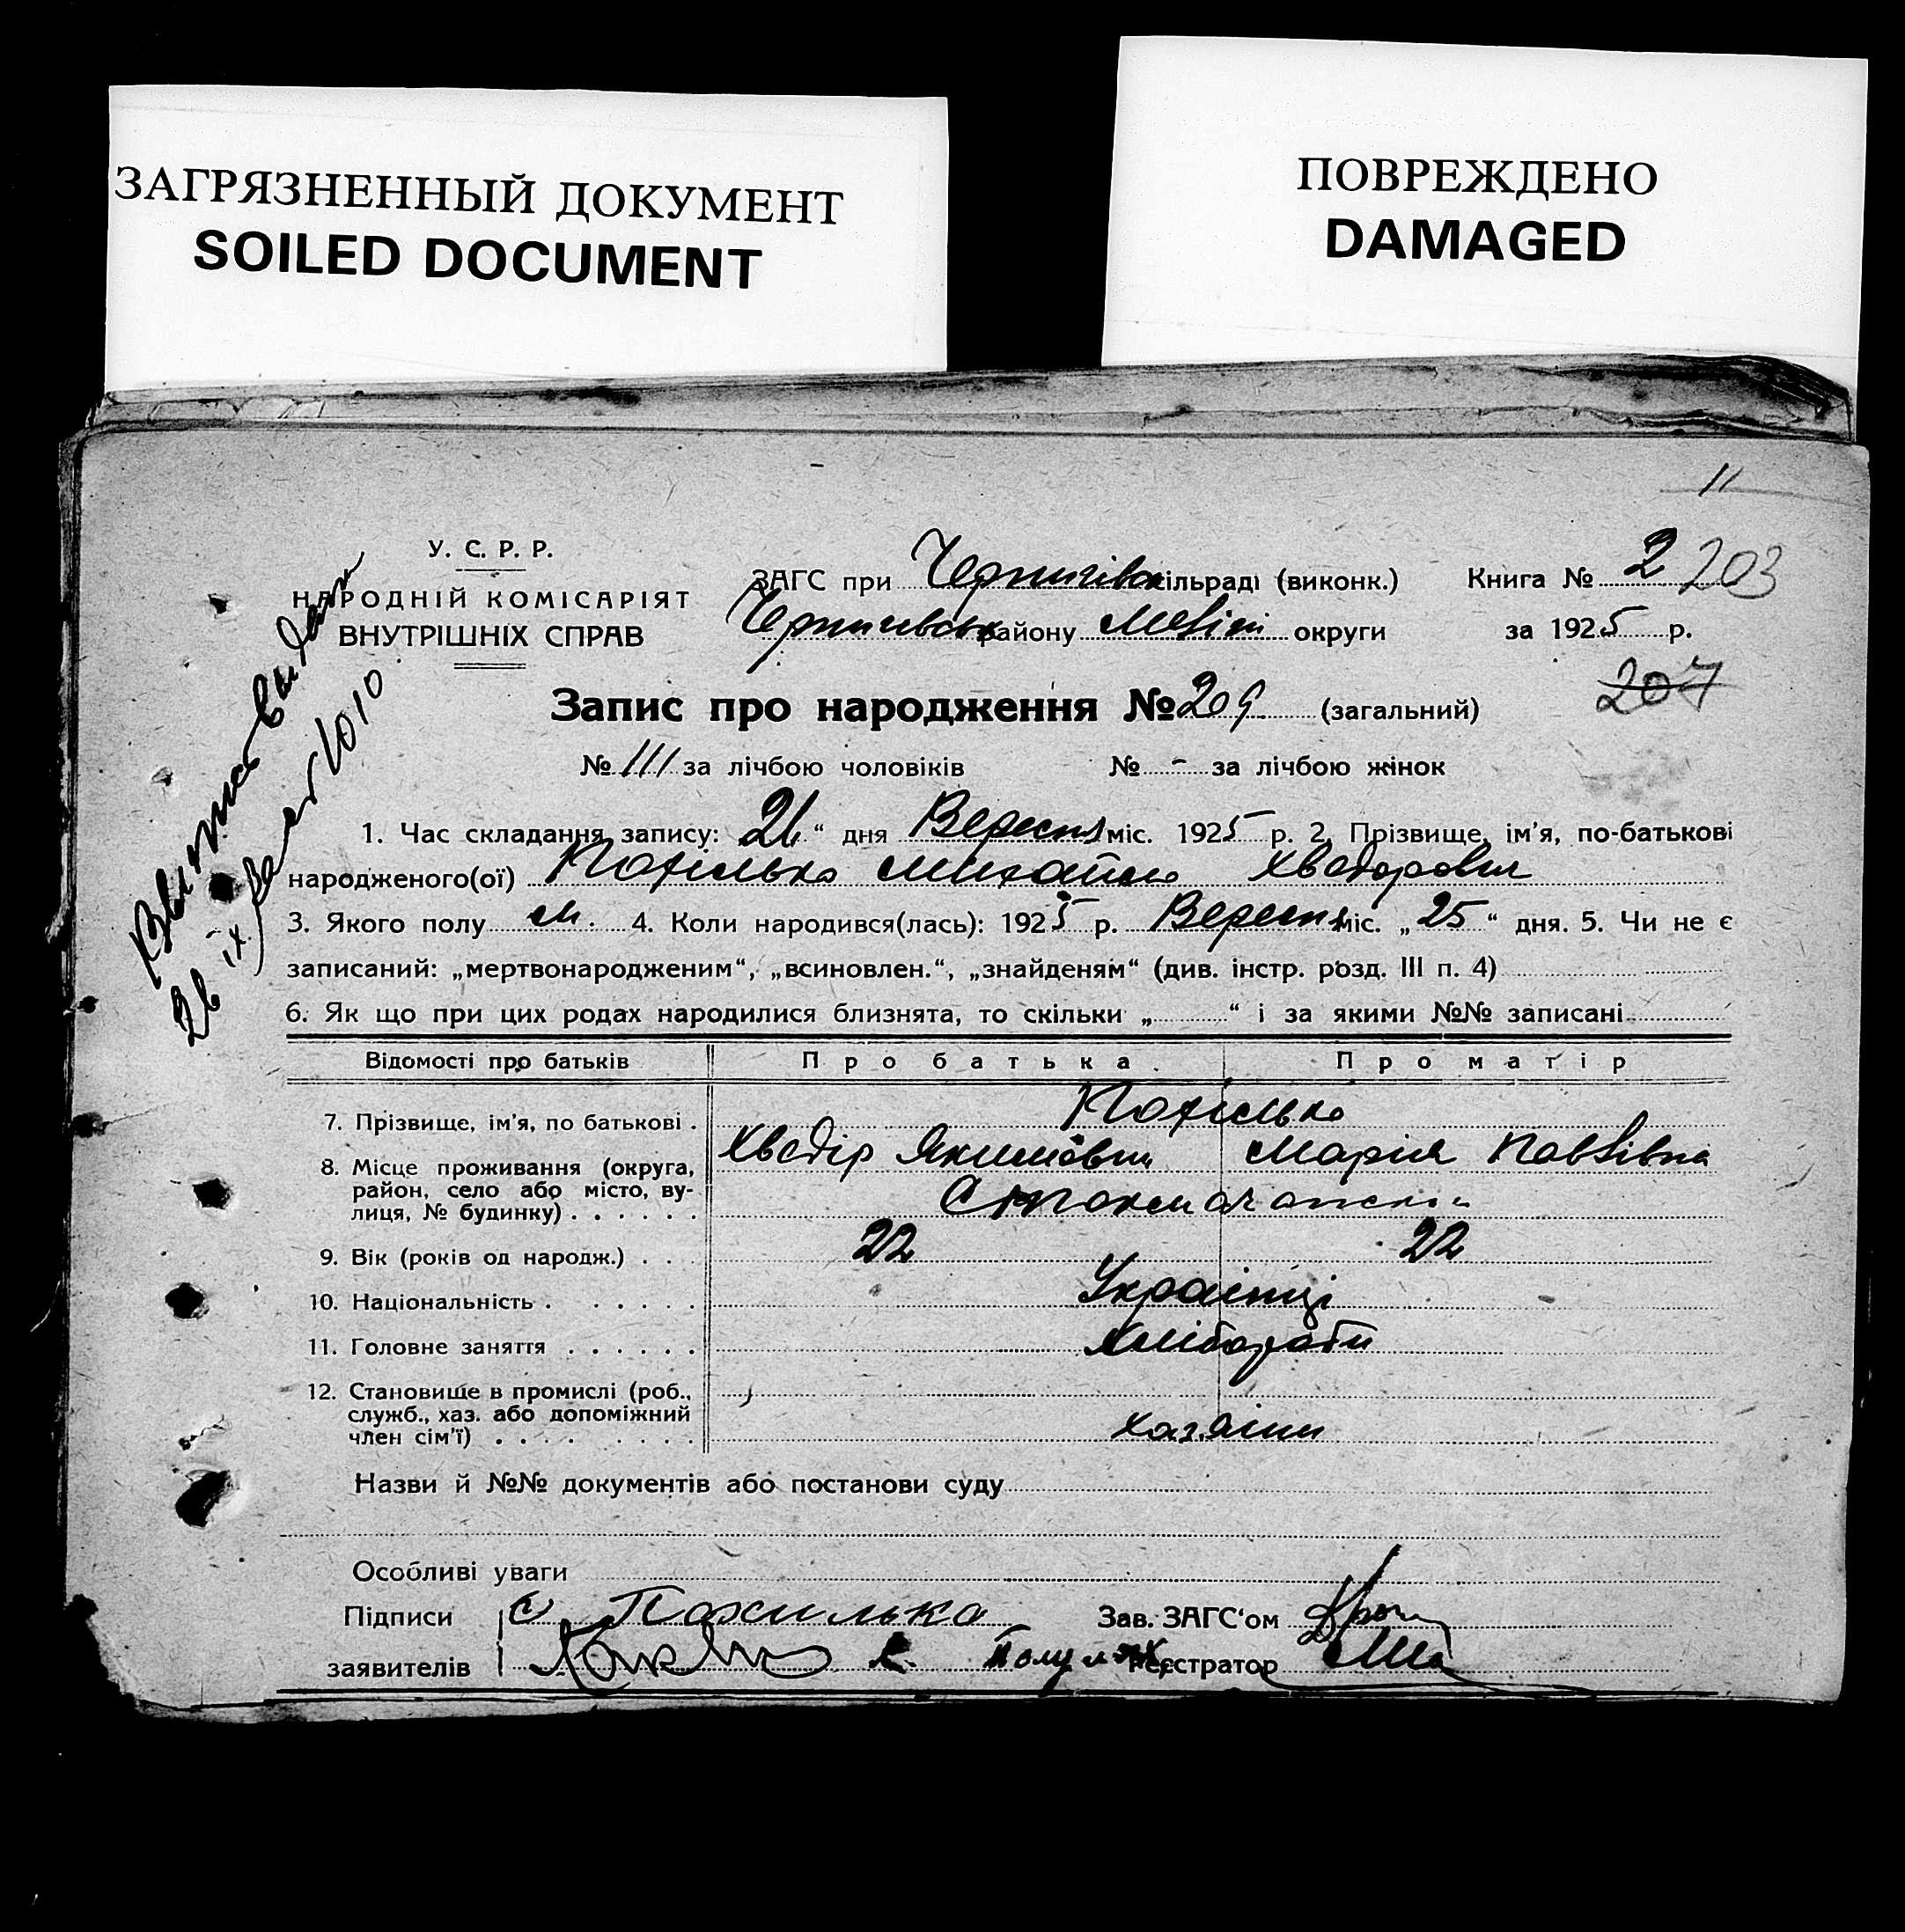 ЗАГРЯЗНЕННЫЙ ДОКУМЕНТ
SOILED DOCUMENT
ПОВРЕЖДЕНО
DAMAGED
11
У. С. Р. Р.
НАРОДНІЙ КОМІСАРІЯТ
ВНУТРІШНІХ СПРАВ
ЗАГС при Чернигівск ількраді (виконк.) Книга № 2 203
Чернигівськ району Меліт округи за 1925 р.
207
Запис про народження № 209 (загальний)
№ 111 за лічбою чоловіків № - за лічбою жінок
1. Час складання запису: 26 “ дня Вересня міс. 1925 р. 2. Прізвище, ім’я, по-батькові
народженого(ої) Похілько Михайло Хведорович
3. Якого полу м. 4. Коли народився(лась): 1925 р. Вересня міс. „25“ дня. 5. Чи не є
записаний: „мертвонародженим“, „всиновлен.“, „знайденям“ (див. інстр. розд. III п. 4)
6. Як що при цих родах народилися близнята, то скільки „ “ і за якими №№ записані
Відомості про батьків Про батька Про матір
7. Прізвище, ім’я, по батькові . Похілько
Хведір Якимович Марія Павлівна
8. Місце проживання (округа,
район, село або місто, ву-
лиця, № будинку) . . . . . .
9. Вік (років од народж.) . . . 22 22
10. Національність . . . . . . Українці
11. Головне заняття . . . . . . Хлібороби
12. Становище в промислі (роб.,
служб., хаз. або допоміжний
член сім’ї) . . . . . . . . . хазяіни
Назви й №№ документів або постанови суду
Особливі уваги
Підписи Похилько Зав. ЗАГС‘ом
заявителів Реєстратор
Витись видан
26 IX
1010